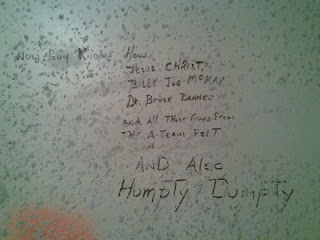 Now Guy Knows How
JESUS CHRIST,
BILLY JOE McKAY
DR. BRUCE BANNER
AND ALL THOSE GUYS FROM
THE A-TEAM FELT
AND Also
HUMPTY DUMPTY